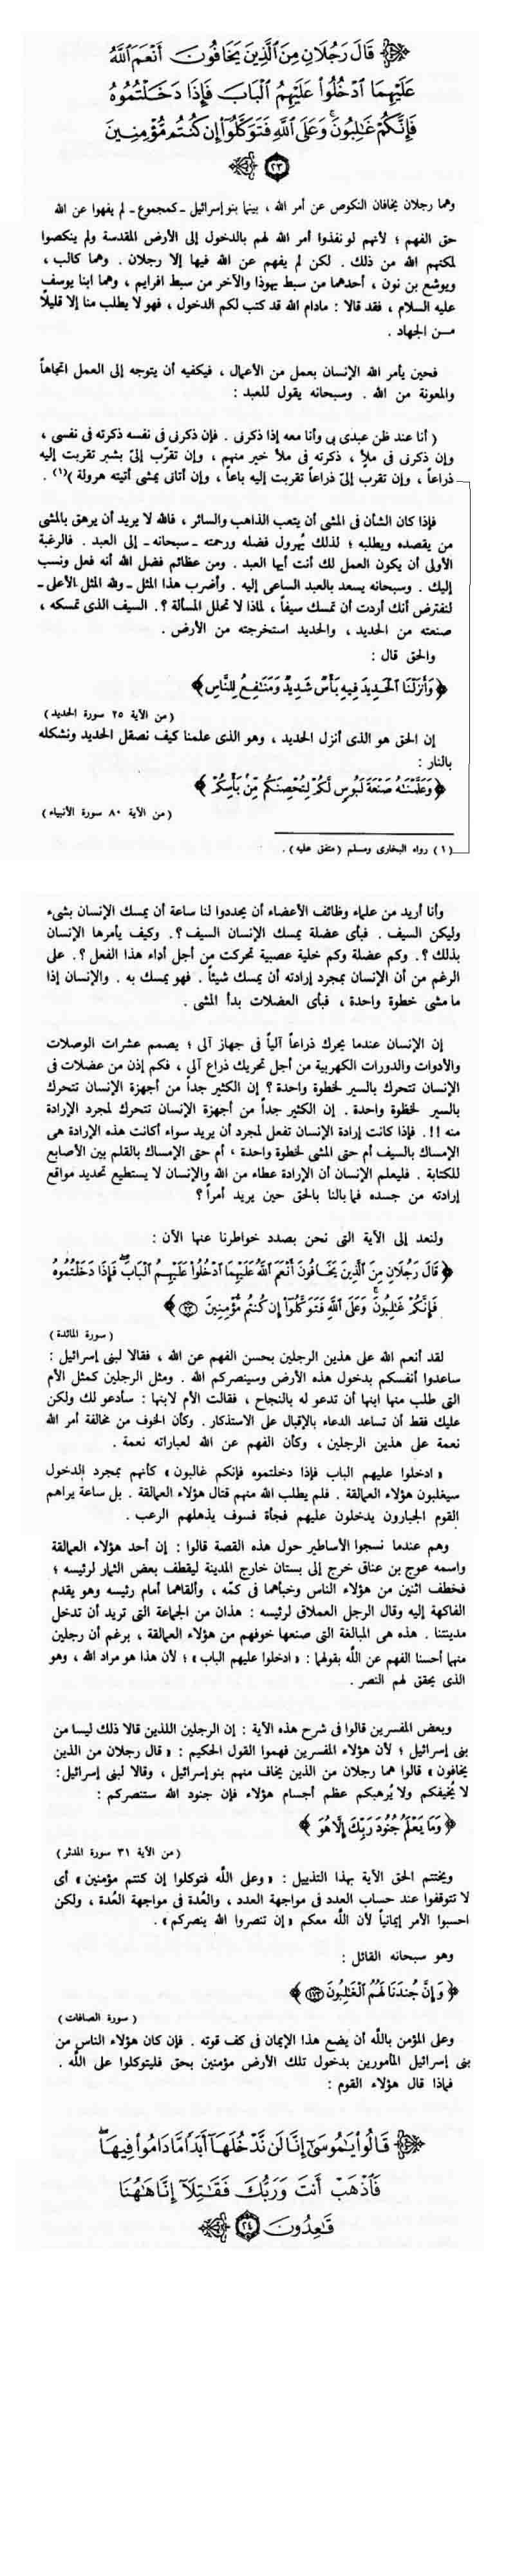 قَالَ رَجُلَانِ مِنَ الَّذِينَ يَخَافُونَ أَنْعَمَ اللَّهُ
عَلَيْهِمَا ادْخُلُوا عَلَيْهِمُ الْبَابَ فَإِذَا دَخَلْتُمُوهُ
فَإِنَّكُمْ غَالِبُونَ وَعَلَى اللَّهِ فَتَوَكَّلُوا إِن كُنتُم مُّؤْمِنِينَ
٢٣
وهما رجلان يخافان النكوص عن أمر الله ، بينما بنو إسرائيل - كمجموع - لم يفهوا عن الله
حق الفهم ؛ لأنهم لو نفذوا أمر الله لهم بالدخول إلى الأرض المقدسة ولم ينكصوا
لمكنهم الله من ذلك . لكن لم يفهم عن الله فيها إلا رجلان . وهما كالب ،
ويوشع بن نون ، أحدهما من سبط يهوذا والآخر من سبط افرايم ، وهما ابنا يوسف
عليه السلام ، فقد قالا : مادام الله قد كتب لكم الدخول ، فهو لا يطلب منا إلا قليلًا
مـن الجهاد .
فحين يأمر الله الإنسان بعمل من الأعمال ، فيكفيه أن يتوجه إلى العمل اتجاهاً
والمعونة من الله . وسبحانه يقول للعبد :
( أنا عند ظن عبدى بى وأنا معه إذا ذكرنى . فإن ذكرنى فى نفسه ذكرته فى نفسى ،
وإن ذكرنى فى ملأ ، ذكرته فى ملأ خير منهم ، وإن تقرّب إلىّ بشبر تقربت إليه
ذراعاً ، وإن تقرب إلىّ ذراعاً تقربت إليه باعاً ، وإن أتانى يمشى أتيته هرولة )(١) .
فإذا كان الشأن فى المشى أن يتعب الذاهب والسائر ، فالله لا يريد أن يرهق بالمشى
من يقصده ويطلبه ؛ لذلك يُهرول فضله ورحمته - سبحانه - إلى العبد . فالرغبة
الأولى أن يكون العمل لك أنت أيها العبد . ومن عظائم فضل الله أنه فعل ونسب
إليك . وسبحانه يسعد بالعبد الساعى إليه . وأضرب هذا المثل - ولله المثل الأعلى -
لنفترض أنك أردت أن تمسك سيفاً ، لماذا لا تحلل المسألة ؟. السيف الذى تمسكه ،
صنعته من الحديد ، والحديد استخرجته من الأرض .
والحق قال :
﴿ وَأَنزَلْنَا الْحَدِيدَ فِيهِ بَأْسٌ شَدِيدٌ وَمَنَافِعُ لِلنَّاسِ ﴾
( من الآية ٢٥ سورة الحديد )
إن الحق هو الذى أنزل الحديد ، وهو الذى علمنا كيف نصقل الحديد ونشكله
بالنار :
﴿ وَعَلَّمْنَاهُ صَنْعَةَ لَبُوسٍ لَّكُمْ لِتُحْصِنَكُم مِّن بَأْسِكُمْ ﴾
( من الآية ٨٠ سورة الأنبياء )
( ١ ) رواه البخارى ومسلم ( متفق عليه ) .
وأنا أريد من علماء وظائف الأعضاء أن يحددوا لنا ساعة أن يمسك الإنسان بشىء
وليكن السيف . فبأى عضلة يمسك الإنسان السيف ؟. وكيف يأمرها الإنسان
بذلك ؟. وكم عضلة وكم خلية عصبية تحركت من أجل أداء هذا الفعل ؟. على
الرغم من أن الإنسان بمجرد إرادته أن يمسك شيئاً . فهو يمسك به . والإنسان إذا
ما مشى خطوة واحدة ، فبأى العضلات بدأ المشى .
إن الإنسان عندما يحرك ذراعاً آلياً فى جهاز آلى ؛ يصمم عشرات الوصلات
والأدوات والدورات الكهربية من أجل تحريك ذراع آلى ، فكم إذن من عضلات فى
الإنسان تتحرك بالسير لخطوة واحدة ؟ إن الكثير جداً من أجهزة الإنسان تتحرك
بالسير لخظوة واحدة . إن الكثير جداً من أجهزة الإنسان تتحرك لمجرد الإرادة
منه !!. فإذا كانت إرادة الإنسان تفعل لمجرد أن يريد سواء أكانت هذه الإرادة هى
الإمساك بالسيف أم حتى المشى لخطوة واحدة ، أم حتى الإمساك بالقلم بين الأصابع
للكتابة . فليعلم الإنسان أن الإرادة عطاء من الله والإنسان لا يستطيع تحديد مواقع
إرادته من جسده فما بالنا بالحق حين يريد أمراً ؟
ولنعد إلى الآية التى نحن بصدد خواطرنا عنها الآن :
﴿ قَالَ رَجُلَانِ مِنَ الَّذِينَ يَخَافُونَ أَنْعَمَ اللَّهُ عَلَيْهِمَا ادْخُلُوا عَلَيْهِمُ الْبَابَ فَإِذَا دَخَلْتُمُوهُ
فَإِنَّكُمْ غَالِبُونَ وَعَلَى اللَّهِ فَتَوَكَّلُوا إِن كُنتُم مُّؤْمِنِينَ ٢٣ ﴾
( سورة المائدة )
لقد أنعم الله على هذين الرجلين بحسن الفهم عن الله ، فقالا لبنى إسرائيل :
ساعدوا أنفسكم بدخول هذه الأرض وسينصركم الله . ومثل الرجلين كمثل الأم
التى طلب منها ابنها أن تدعو له بالنجاح ، فقالت الأم لابنها : سأدعو لك ولكن
عليك فقط أن تساعد الدعاء بالإقبال على الاستذكار . وكأن الخوف من مخالفة أمر الله
نعمة على هذين الرجلين ، وكأن الفهم عن الله لعباراته نعمة .
« ادخلوا عليهم الباب فإذا دخلتموه فإنكم غالبون » كأنهم بمجرد الدخول
سيغلبون هؤلاء العمالقة . فلم يطلب الله منهم قتال هؤلاء العمالقة . بل ساعة يراهم
القوم الجبارون يدخلون عليهم فجأة فسوف يذهلهم الرعب .
وهم عندما نسجوا الأساطير حول هذه القصة قالوا : إن أحد هؤلاء العمالقة
واسمه عوج بن عناق خرج إلى بستان خارج المدينة ليقطف بعض الثمار لرئيسه ؛
فخطف اثنين من هؤلاء الناس وخبأهما فى كمّه ، وألقاهما أمام رئيسه وهو يقدم
الفاكهة إليه وقال الرجل العملاق لرئيسه : هذان من الجماعة التى تريد أن تدخل
مدينتنا . هذه هى المبالغة التى صنعها خوفهم من هؤلاء العمالقة ، برغم أن رجلين
منهما أحسنا الفهم عن الله بقولهما : « ادخلوا عليهم الباب » ؛ لأن هذا هو مراد الله ، وهو
الذى يحقق لهم النصر .
وبعض المفسرين قالوا فى شرح هذه الآية : إن الرجلين اللذين قالا ذلك ليسا من
بنى إسرائيل ؛ لأن هؤلاء المفسرين فهموا القول الحكيم : « قال رجلان من الذين
يخافون » قالوا هما رجلان من الذين يخاف منهم بنو إسرائيل ، وقالا لبنى إسرائيل :
لا يُخيفكم ولا يُرهبكم عظم أجسام هؤلاء فإن جنود الله ستنصركم :
﴿ وَمَا يَعْلَمُ جُنُودَ رَبِّكَ إِلَّا هُوَ ﴾
( من الآية ٣١ سورة المدثر )
ويختتم الحق الآية بهذا التذييل : « وعلى الله فتوكلوا إن كنتم مؤمنين » أى
لا تتوقفوا عند حساب العدد فى مواجهة العدد ، والعُدة فى مواجهة العُدة ، ولكن
احسبوا الأمر إيمانياً لأن الله معكم « إن تنصروا الله ينصركم » .
وهو سبحانه القائل :
﴿ وَإِنَّ جُندَنَا لَهُمُ الْغَالِبُونَ ١٧٣ ﴾
( سورة الصافات )
وعلى المؤمن بالله أن يضع هذا الإيمان فى كف قوته . فإن كان هؤلاء الناس من
بنى إسرائيل المأمورين بدخول تلك الأرض مؤمنين بحق فليتوكلوا على الله .
فماذا قال هؤلاء القوم :
قَالُوا يَا مُوسَىٰ إِنَّا لَن نَّدْخُلَهَا أَبَدًا مَّا دَامُوا فِيهَا
فَاذْهَبْ أَنتَ وَرَبُّكَ فَقَاتِلَا إِنَّا هَاهُنَا
قَاعِدُونَ ٢٤